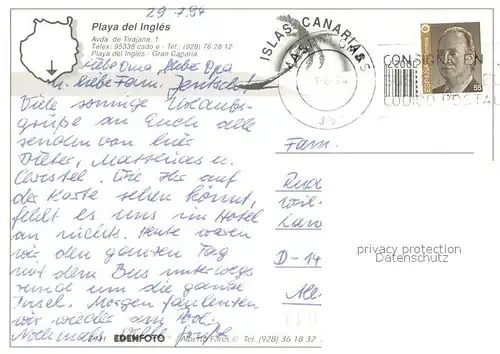 29.7.94
Playa del Inglés
Avda. de Tirajana, 1
Télex: 95338 cado e - Tel: (928) 76 28 12
Playa del Inglés - Gran Canaria
ISLAS CANARIAS
CONSIGNE EN
CODIGO POSTAL
ESPAÑA
55
Liebe Oma, liebe Opa
u. liebe Fam. Jentsch!
Viele sonnige Urlaubs-
grüße an Euch alle
senden von hier
Dieter, Matthias u.
Christel. Wie Ihr auf
der Karte sehen könnt,
fehlt es uns im Hotel
an nichts. Heute waren
wir den ganzen Tag
mit dem Bus unterwegs
rund um die ganze
Insel. Morgen faulenzen
wir wieder am
Nochmals viele Grüße
Fam.
D-14
privacy protection
Datenschutz
EDENFOTO
Alberto Fares © Tel. (928) 36 18 32